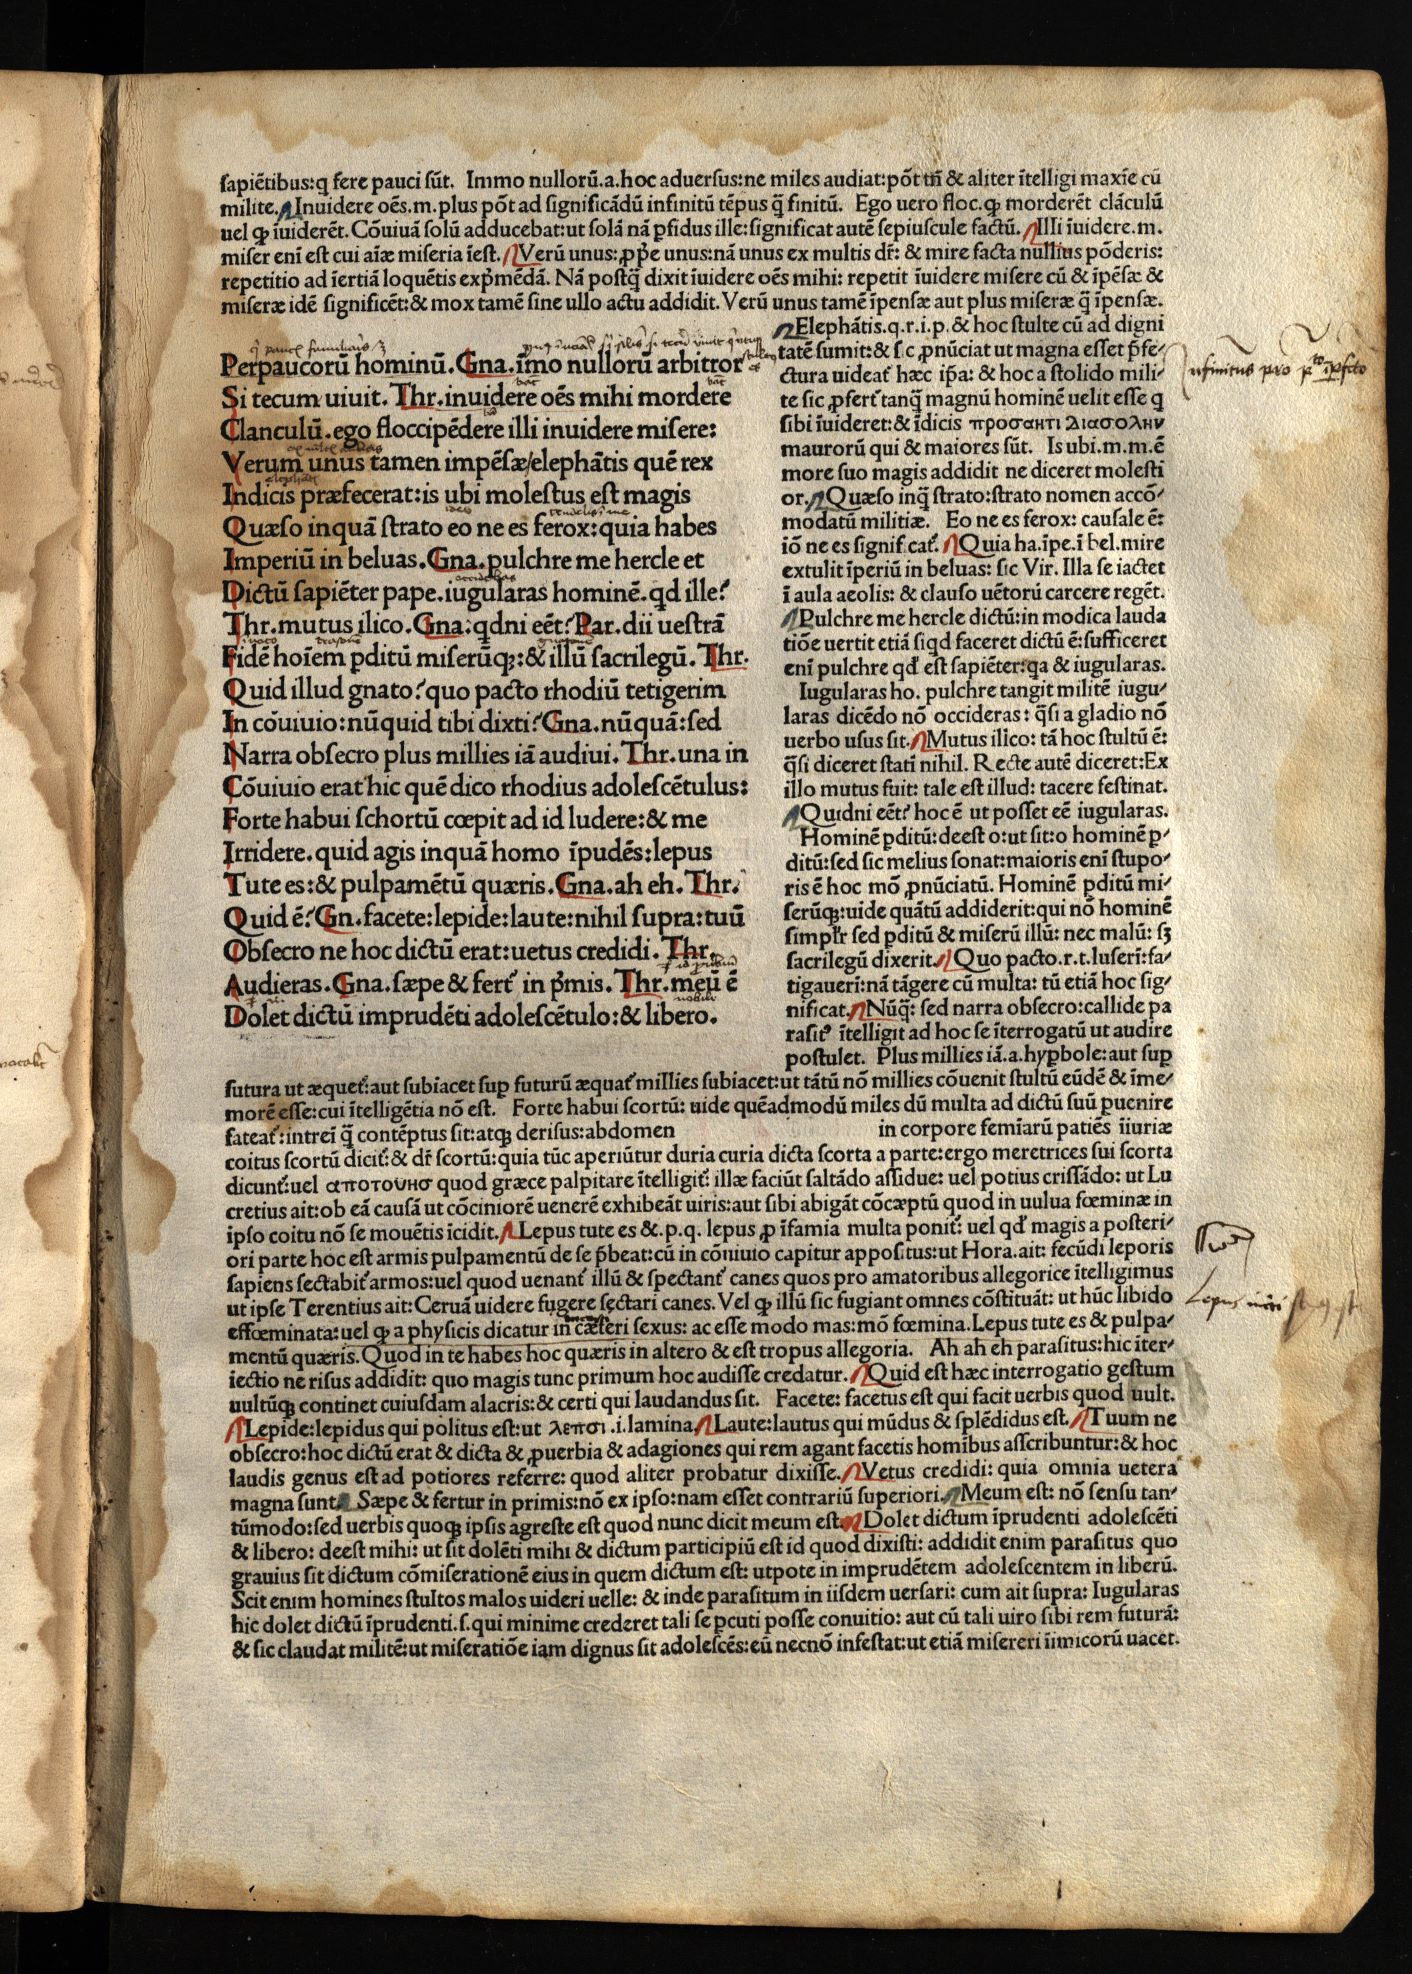 sapiẽtibus:q fere pauci sũt. Immo nullorũ.a.hoc aduersus:ne miles audiat:põt tñ & aliter ĩtelligi maxĩe cũ
milite. Inuidere oẽs.m.plus põt ad significãdũ infinitũ tẽpus q̃ finitũ. Ego uero floc.qꝫ morderẽt clãculũ
uel qꝫ ĩuiderẽt. Cõuiuã solũ adducebat:ut solã nã ꝑfidus ille:significat autẽ sepiuscule factũ. Illi ĩuidere.m.
miser enĩ est cui aĩæ miseria ĩest. Verũ unus:ꝓp̃e unus:nã unus ex multis dr̃: & mire facta nullius põderis:
repetitio ad ĩertiã loquẽtis exp̃mẽdã. Nã postq̃ dixit ĩuidere oẽs mihi: repetit ĩuidere misere cũ & ĩpẽsæ &
miseræ idẽ significẽt:& mox tamẽ sine ullo actu addidit. Verũ unus tamẽ ĩpensæ aut plus miseræ q̃ ĩpensæ.
Perpaucorũ hominũ. Gna. ĩmo nullorũ arbitror
Si tecum uiuit. Thr. inuidere oẽs mihi mordere
Clanculũ. ego floccipẽdere illi inuidere misere:
Verum unus tamen impẽsæ/elephãtis quẽ rex
Indicis præfecerat:is ubi molestus est magis
Quæso inquã strato eo ne es ferox:quia habes
Imperiũ in beluas. Gna. pulchre me hercle et
Dictũ sapiẽter pape. iugularas hominẽ. qd ille?
Thr. mutus ilico. Gna: qdni eẽt? Par. dii uestrã
Fidẽ hoĩem ꝑditũ miserũqꝫ:& illũ sacrilegũ. Thr.
Quid illud gnato? quo pacto rhodiũ tetigerim
In cõuiuio:nũquid tibi dixti? Gna. nũquã:sed
Narra obsecro plus millies iã audiui. Thr. una in
Cõuiuio erat hic quẽ dico rhodius adolescẽtulus:
Forte habui schortũ cœpit ad id ludere:& me
Irridere. quid agis inquã homo ĩpudẽs:lepus
Tute es:& pulpamẽtũ quæris. Gna. ah eh. Thr.
Quid ẽ? Gn. facete:lepide:laute:nihil supra:tuũ
Obsecro ne hoc dictũ erat:uetus credidi. Thr.
Audieras. Gna. sæpe & fert᷑ in p̃mis. Thr. meũ ẽ
Dolet dictũ imprudẽti adolescẽtulo:& libero.
Elephãtis.q.r.i.p. & hoc stulte cũ ad digni
tatẽ sumit:& sic ꝓnũciat ut magna esset p̃fe-
ctura uideat᷑ hæc ip̃a: & hoc a stolido mili-
te sic ꝓfert᷑ tanq̃ magnũ hominẽ uelit esse q
sibi ĩuideret:& ĩdicis προσαητι λιασολην
maurorũ qui & maiores sũt. Is ubi.m.m.ẽ
more suo magis addidit ne diceret molesti
or. Quæso inq̃ strato:strato nomen accõ-
modatũ militiæ. Eo ne es ferox: causale ẽ:
iõ ne es significat᷑. Quia ha.ĩpe.ĩ bel.mire
extulit ĩperiũ in beluas: sic Vir. Illa se iactet
ĩ aula aeolis: & clauso uẽtorũ carcere regẽt.
Pulchre me hercle dictũ:in modica lauda
tiõe uertit etiã siqd faceret dictũ ẽ:sufficeret
enĩ pulchre qd̃ est sapiẽter:qa & iugularas.
Iugularas ho. pulchre tangit militẽ iugu-
laras dicẽdo nõ occideras: q̃si a gladio nõ
uerbo usus sit. Mutus ilico: tã hoc stultũ ẽ:
q̃si diceret statĩ nihil. Recte autẽ diceret:Ex
illo mutus fuit: tale est illud: tacere festinat.
Quidni eẽt? hoc ẽ ut posset eẽ iugularas.
Hominẽ ꝑditũ:deest o:ut sit:o hominẽ ꝑ-
ditũ:sed sic melius sonat:maioris enĩ stupo-
ris ẽ hoc mõ ꝓnũciatũ. Hominẽ ꝑditũ mi-
serũqꝫ:uide quãtũ addiderit:qui nõ hominẽ
simpl̃r sed ꝑditũ & miserũ illũ: nec malũ: sꝫ
sacrilegũ dixerit. Quo pacto.r.t.luserĩ:fa-
tigauerĩ:nã tãgere cũ multa: tũ etiã hoc sig-
nificat. Nũq̃: sed narra obsecro:callide pa
rasit᷒ ĩtelligit ad hoc se ĩterrogatũ ut audire
postulet. Plus millies iã.a.hyꝑbole:aut suꝑ
futura ut æquet᷑:aut subiacet suꝑ futurũ æquat᷑ millies subiacet:ut tãtũ nõ millies cõuenit stultũ eũdẽ & ĩme-
morẽ esse:cui ĩtelligẽtia nõ est. Forte habui scortũ: uide quẽadmodũ miles dũ multa ad dictũ suũ ꝑuenire
fateat᷑:intreĩ q̃ contẽptus sit:atqꝫ derisus:abdomen in corpore femĩarũ patiẽs ĩiuriæ
coitus scortũ dicit᷑:& dr̃ scortũ:quia tũc aperiũtur duria curia dicta scorta a parte:ergo meretrices sui scorta
dicunt᷑:uel αποτουησ quod græce palpitare ĩtelligit᷑: illæ faciũt saltãdo assidue: uel potius crissãdo: ut Lu
cretius ait:ob eã causã ut cõciniorẽ uenerẽ exhibeãt uiris:aut sibi abigãt cõcæptũ quod in uulua fœminæ in
ipso coitu nõ se mouẽtis ĩcidit. Lepus tute es &.p.q. lepus ꝓ ĩfamia multa ponit᷑: uel qd̃ magis a posteri-
ori parte hoc est armis pulpamentũ de se p̃beat:cũ in cõuiuio capitur appositus:ut Hora.ait: fecũdi leporis
sapiens sectabit᷑ armos:uel quod uenant᷑ illũ & spectant᷑ canes quos pro amatoribus allegorice ĩtelligimus
ut ipse Terentius ait: Ceruã uidere fugere sectari canes. Vel qꝫ illũ sic fugiant omnes cõstituãt: ut hũc libido
effœminata:uel qꝫ a physicis dicatur in cæteri sexus: ac esse modo mas:mõ fœmina. Lepus tute es & pulpa-
mentũ quæris. Quod in te habes hoc quæris in altero & est tropus allegoria. Ah ah eh parasitus:hic ĩter-
iectio ne risus addidit: quo magis tunc primum hoc audisse credatur. Quid est hæc interrogatio gestum
uultũqꝫ continet cuiusdam alacris:& certi qui laudandus sit. Facete: facetus est qui facit uerbis quod uult.
Lepide:lepidus qui politus est:ut λεπσι .i.lamina. Laute:lautus qui mũdus & splẽdidus est. Tuum ne
obsecro:hoc dictũ erat & dicta & ꝓuerbia & adagiones qui rem agant facetis homĩbus asscribuntur:& hoc
laudis genus est ad potiores referre: quod aliter probatur dixisse. Vetus credidi: quia omnia uetera
magna sunt. Sæpe & fertur in primis:nõ ex ipso:nam esset contrariũ superiori. Meum est: nõ sensu tan-
tũmodo:sed uerbis quoqꝫ ipsis agreste est quod nunc dicit meum est. Dolet dictum ĩprudenti adolescẽti
& libero: deest mihi: ut sit dolẽti mihi & dictum participiũ est id quod dixisti: addidit enim parasitus quo
grauius sit dictum cõmiserationẽ eius in quem dictum est: utpote in imprudẽtem adolescentem in liberũ.
Scit enim homines stultos malos uideri uelle: & inde parasitum in iisdem uersari: cum ait supra: Iugularas
hic dolet dictũ ĩprudenti.s.qui minime crederet tali se ꝑcuti posse conuitio: aut cũ tali uiro sibi rem futurã:
& sic claudat militẽ:ut miseratiõe iam dignus sit adolescẽs:eũ necnõ infestat:ut etiã misereri ĩimicorũ uacet.